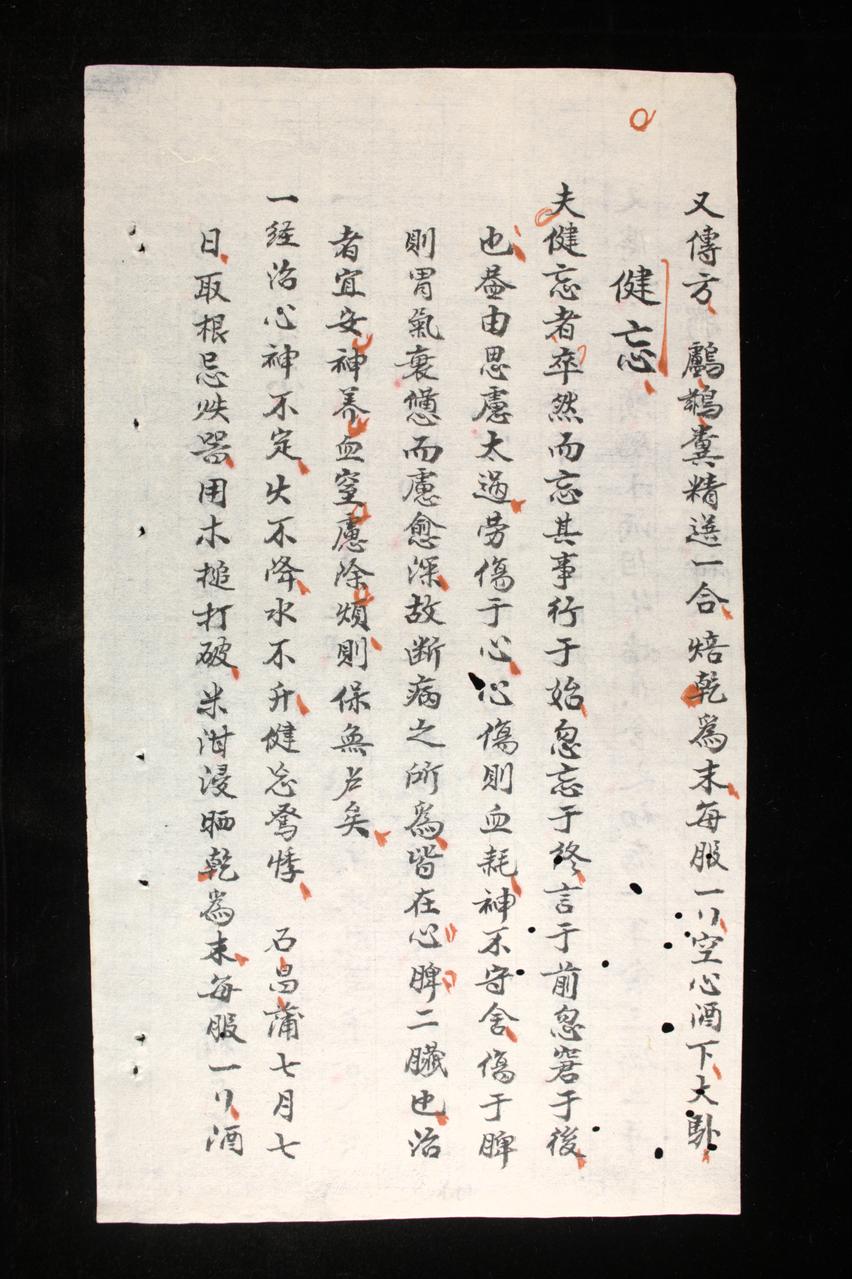 又傳方鸕鷀糞精送一合焙乾爲末每服一刂空心酒下大馱
健忘
夫健忘者卒然而忘其事行于始忽忘于終言于前忽窘于後
也葢由思慮太過劳傷于心心傷則血耗神不守舍傷于脾
則胃氣衰憊而慮愈深故断病之所爲皆在心脾二臟也治
者宜安神养血窒慮除煩則保無占矣
一経治心神不定火不降水不升健忘驚悸 石昌蒲七月七
日取根忌鉄器用木搥打破米泔浸晒乾爲末每服一刂酒